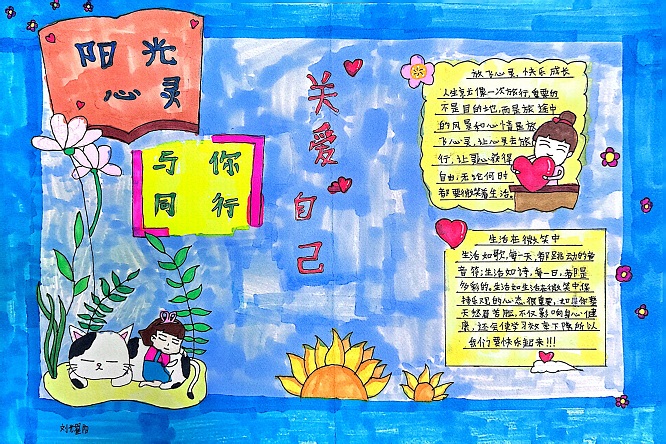 阳光
心灵
与你
同行
关爱自己
放飞心灵,快乐成长
人生就像一次旅行,重要的
不是目的地,而是旅途中
的风景和心情是放
飞心灵,让心灵去旅
行,让灵心获得
自由,无论何时
都要微笑着生活。
生活在微笑中
生活如歌,每一天,都是跳动的音
音符;生活如诗,每一日,都是
多彩的。生活如生活在微笑中保
持乐观的心态,很重要,如果你整
天愁眉苦脸,不仅影响身心健
康,还会使学习效率下降所以
我们要快乐起来!!!